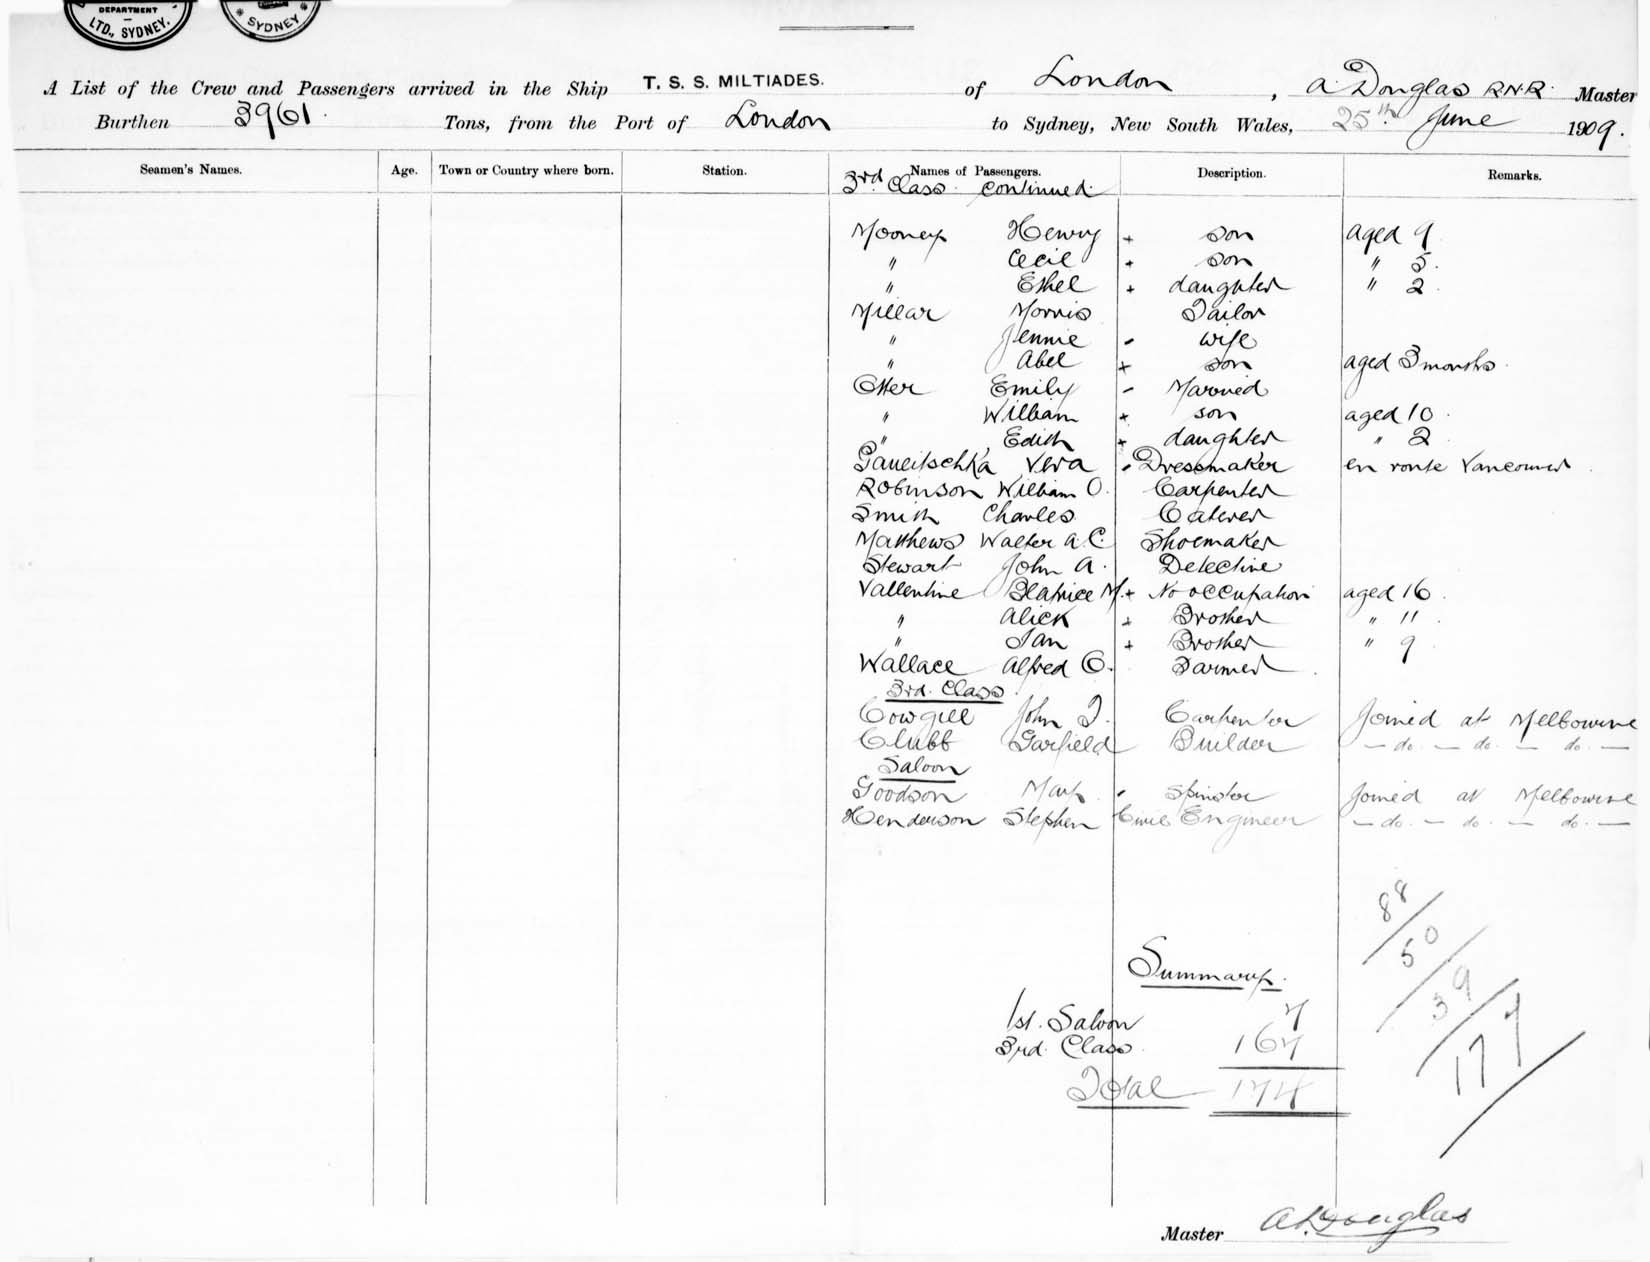 DEPARTMENT
LTD., SYDNEY.
* SYDNEY *
A List of the Crew and Passengers arrived in the Ship T. S. S. MILTIADES. of London, A. Douglas R.N.R. Master
Burthen 3961. Tons, from the Port of London to Sydney, New South Wales, 25th June 1909.
Seamen's Names. Age. Town or Country where born. Station. Names of Passengers. Description. Remarks.
3rd Class continued.
Mooney Henry + son aged 9
" Cecil + son " 5.
" Ethel + daughter " 2.
Millar Morris Tailor
" Jennie - wife
" Abel + son aged 3 months.
Otter Emily - Married
" William + son aged 10.
" Edith + daughter " 2
Vera - Dressmaker en route Vancouver.
Robinson William O. Carpenter
Smith Charles Caterer
Matthews Walter A. C. Shoemaker
Stewart John A. Detective
Vallentine Beatrice M. + No occupation aged 16.
" Alick + Brother " 11.
" Ian + Brother " 9.
Wallace Alfred C. Farmer.
3rd. Class.
Cowgill John T. Carpenter Joined at Melbourne
Clubb Garfield Builder — do. — do. — do. —
Saloon
Goodson Mary - Spinster Joined at Melbourne
Henderson Stephen Civil Engineer — do. — do. — do. —
88
50
39
177
Summary.
1st. Saloon 7
3rd. Class. 167
Total 174
Master A. Douglas